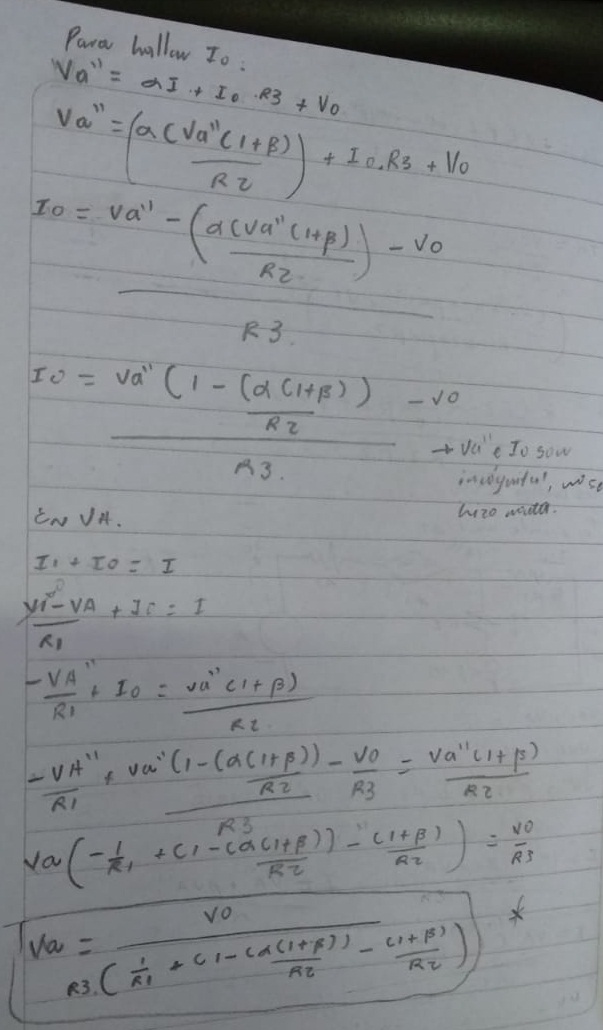 Para hallar Io:
Va" = αI + Io.R3 + Vo
Va" = (α(Va"(1+β)/R2) + Io.R3 + Vo
Io = Va" - (α(Va"(1+β)/R2) - Vo
R3.
Io = Va" (1 - (α(1+β))/R2 - Vo
R3. → Va" e Io son
incógnitas, no se
hizo
En VA.
I1 + Io = I
Vi-VA/R1 + Io = I
-VA"/R1 + Io = Va"(1+β)/R2
-VA"/R1 + Va"(1-(α(1+β))/R2 - Vo/R3 = Va"(1+β)/R2
R3
Va(-1/R1 + (1-(α(1+β))/R2 - (1+β)/R2) = Vo/R3
Va = Vo *
R3.(1/R1 + (1-(α(1+β))/R2 - (1+β)/R2)